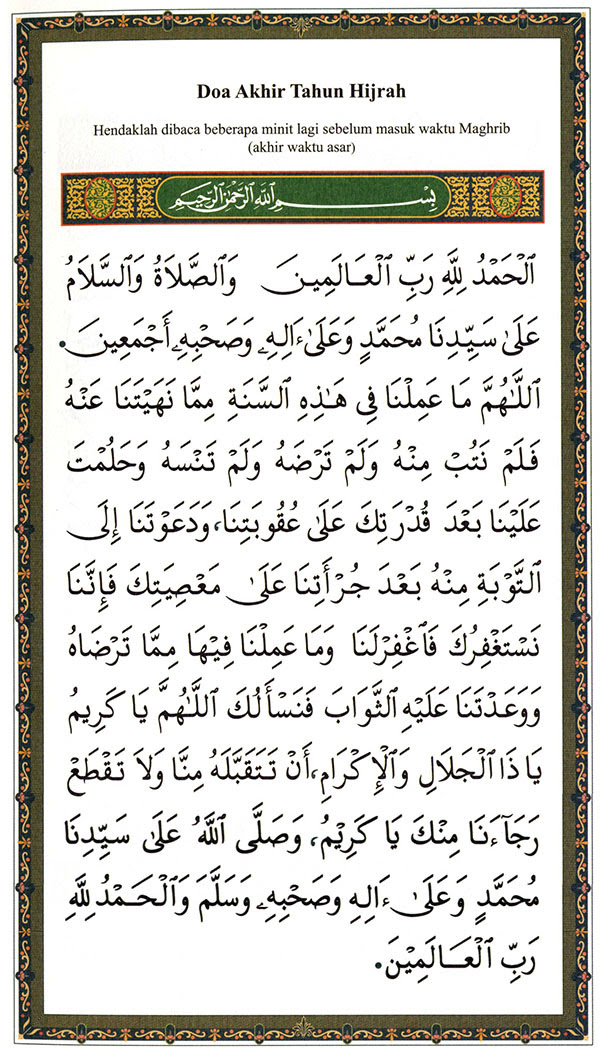 Doa Akhir Tahun Hijrah
Hendaklah dibaca beberapa minit lagi sebelum masuk waktu Maghrib
(akhir waktu asar)
بِسْمِ اللَّهِ الرَّحْمَٰنِ الرَّحِيمِ
الْحَمْدُ لِلَّهِ رَبِّ الْعَالَمِينَ وَالصَّلَاةُ وَالسَّلَامُ
عَلَىٰ سَيِّدِنَا مُحَمَّدٍ وَعَلَىٰ ءَالِهِۦ وَصَحْبِهِۦ أَجْمَعِينَ.
اللَّهُمَّ مَا عَمِلْنَا فِي هَٰذِهِ السَّنَةِ مِمَّا نَهَيْتَنَا عَنْهُ
فَلَمْ نَتُبْ مِنْهُ وَلَمْ تَرْضَهُ وَلَمْ تَنْسَهُ وَحَلُمْتَ
عَلَيْنَا بَعْدَ قُدْرَتِكَ عَلَىٰ عُقُوبَتِنَا، وَدَعَوْتَنَا إِلَى
التَّوْبَةِ مِنْهُ بَعْدَ جُرْأَتِنَا عَلَىٰ مَعْصِيَتِكَ فَإِنَّنَا
نَسْتَغْفِرُكَ فَاغْفِرْلَنَا وَمَا عَمِلْنَا فِيهَا مِمَّا تَرْضَاهُ
وَوَعَدْتَنَا عَلَيْهِ الثَّوَابَ فَنَسْأَلُكَ اللَّهُمَّ يَا كَرِيمُ
يَا ذَا الْجَلَالِ وَالْإِكْرَامِ، أَنْ تَتَقَبَّلَهُ مِنَّا وَلَا تَقْطَعْ
رَجَآءَنَا مِنْكَ يَا كَرِيْمُ، وَصَلَّى اللَّهُ عَلَىٰ سَيِّدِنَا
مُحَمَّدٍ وَعَلَىٰ ءَالِهِ وَصَحْبِهِۦ وَسَلَّمَ وَالْحَمْدُ لِلَّهِ
رَبِّ الْعَالَمِيْنَ.